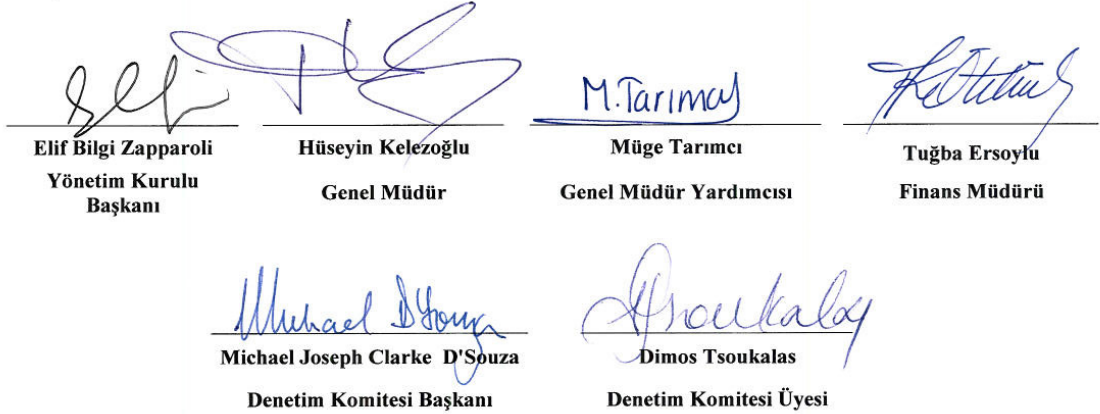 M. Tarımcı
Elif Bilgi Zapparoli
Yönetim Kurulu
Başkanı
Hüseyin Kelezoğlu
Genel Müdür
Müge Tarımcı
Genel Müdür Yardımcısı
Tuğba Ersoylu
Finans Müdürü
Michael D'Souza
Michael Joseph Clarke D'Souza
Denetim Komitesi Başkanı
Tsoukalas
Dimos Tsoukalas
Denetim Komitesi Üyesi